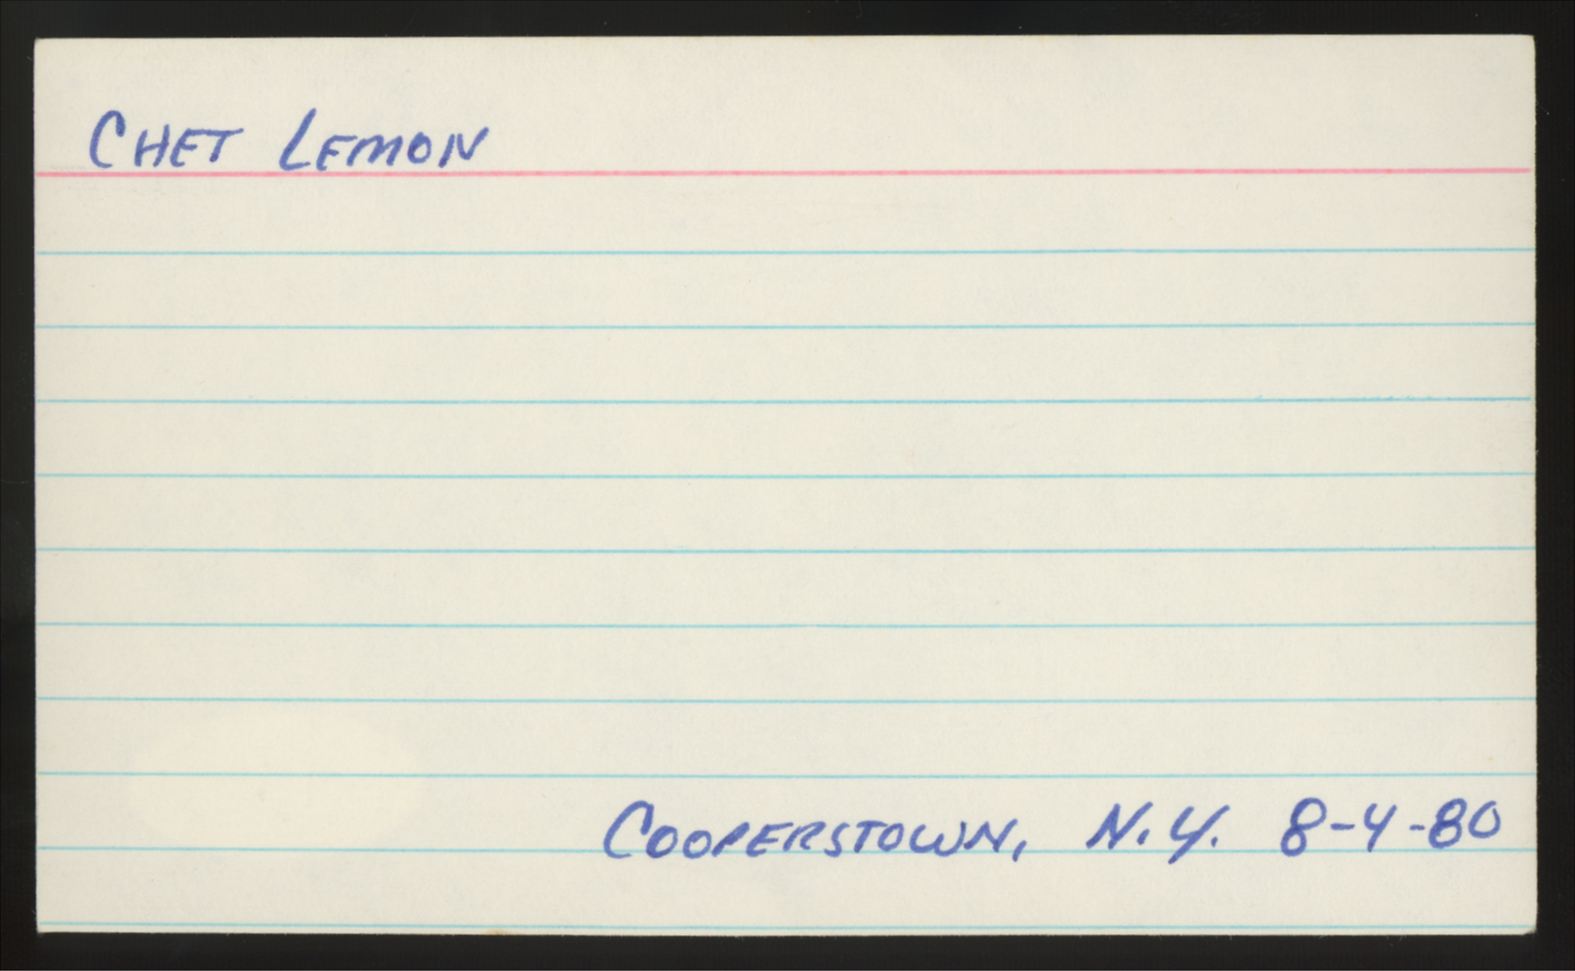 CHET LEMON
COOPERSTOWN, N.Y. 8-4-80